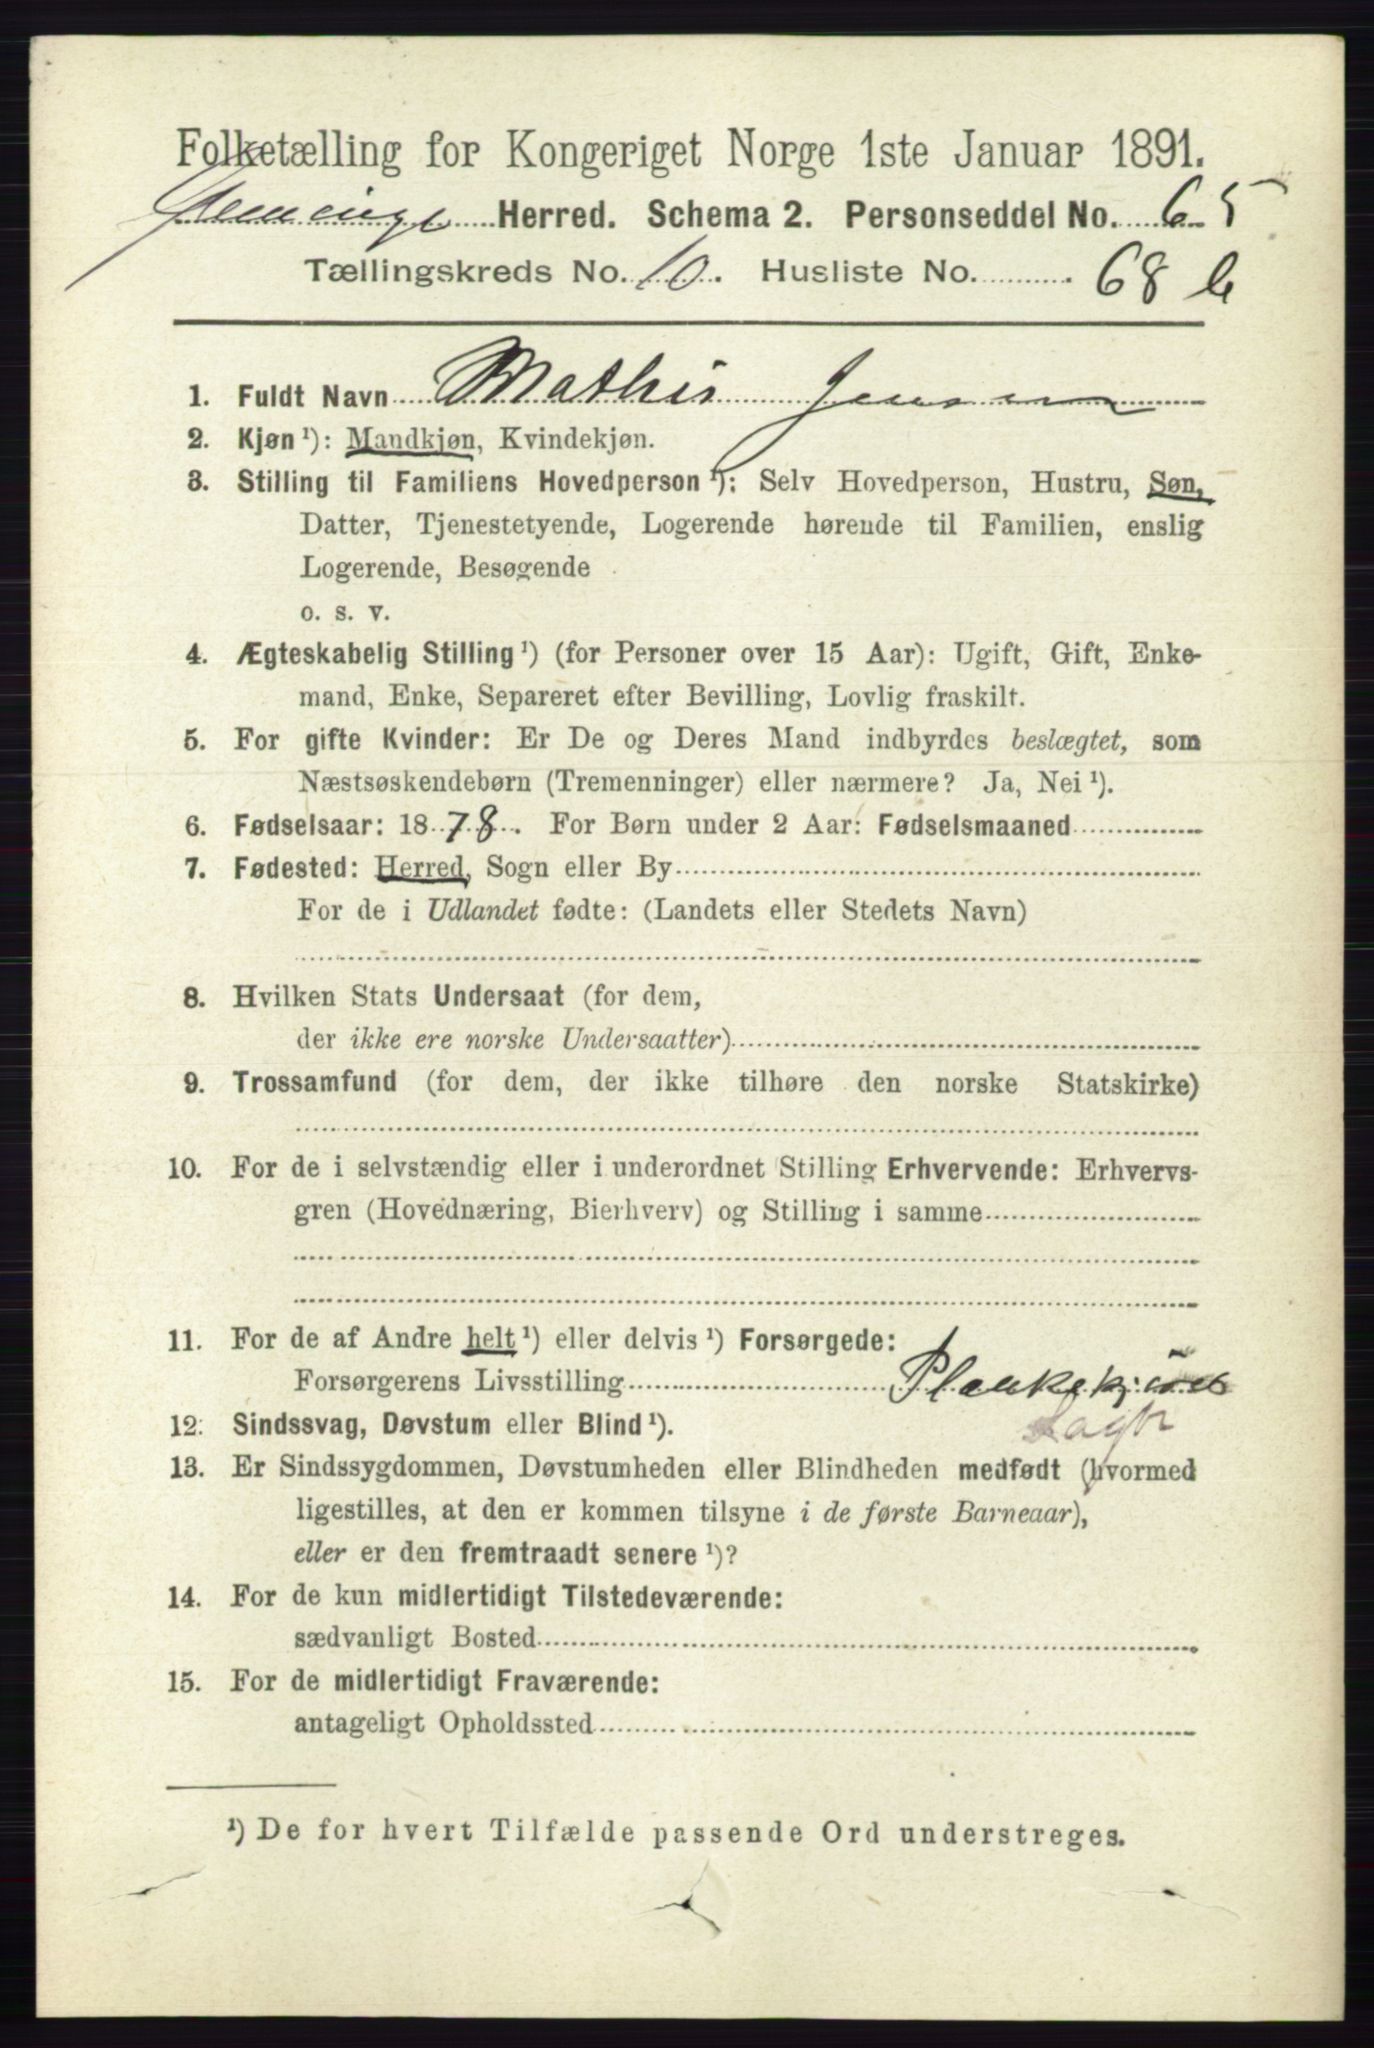 Folketælling for Kongeriget Norge 1ste Januar 1891.
Glemminge Herred. Schema 2. Personseddel No. 65
Tællingskreds No. 10. Husliste No. 68 b
1. Fuldt Navn Mathis Jensen
2. Kjøn¹): Mandkjøn, Kvindekjøn.
3. Stilling til Familiens Hovedperson¹): Selv Hovedperson, Hustru, Søn,
Datter, Tjenestetyende, Logerende hørende til Familien, enslig
Logerende, Besøgende
o. s. v.
4. Ægteskabelig Stilling¹) (for Personer over 15 Aar): Ugift, Gift, Enke-
mand, Enke, Separeret efter Bevilling, Lovlig fraskilt.
5. For gifte Kvinder: Er De og Deres Mand indbyrdes beslægtet, som
Næstsøskendebørn (Tremenninger) eller nærmere? Ja, Nei¹).
6. Fødselsaar: 1878. For Børn under 2 Aar: Fødselsmaaned
7. Fødested: Herred, Sogn eller By
For de i Udlandet fødte: (Landets eller Stedets Navn)
8. Hvilken Stats Undersaat (for dem,
der ikke ere norske Undersaatter)
9. Trossamfund (for dem, der ikke tilhøre den norske Statskirke)
10. For de i selvstændig eller i underordnet Stilling Erhvervende: Erhvervs-
gren (Hovednæring, Bierhverv) og Stilling i samme
11. For de af Andre helt¹) eller delvis¹) Forsørgede:
Forsørgerens Livsstilling
12. Sindssvag, Døvstum eller Blind¹).
13. Er Sindssygdommen, Døvstumheden eller Blindheden medfødt (hvormed
ligestilles, at den er kommen tilsyne i de første Barneaar),
eller er den fremtraadt senere¹)?
14. For de kun midlertidigt Tilstedeværende:
sædvanligt Bosted
15. For de midlertidigt Fraværende:
antageligt Opholdssted
¹) De for hvert Tilfælde passende Ord understreges.